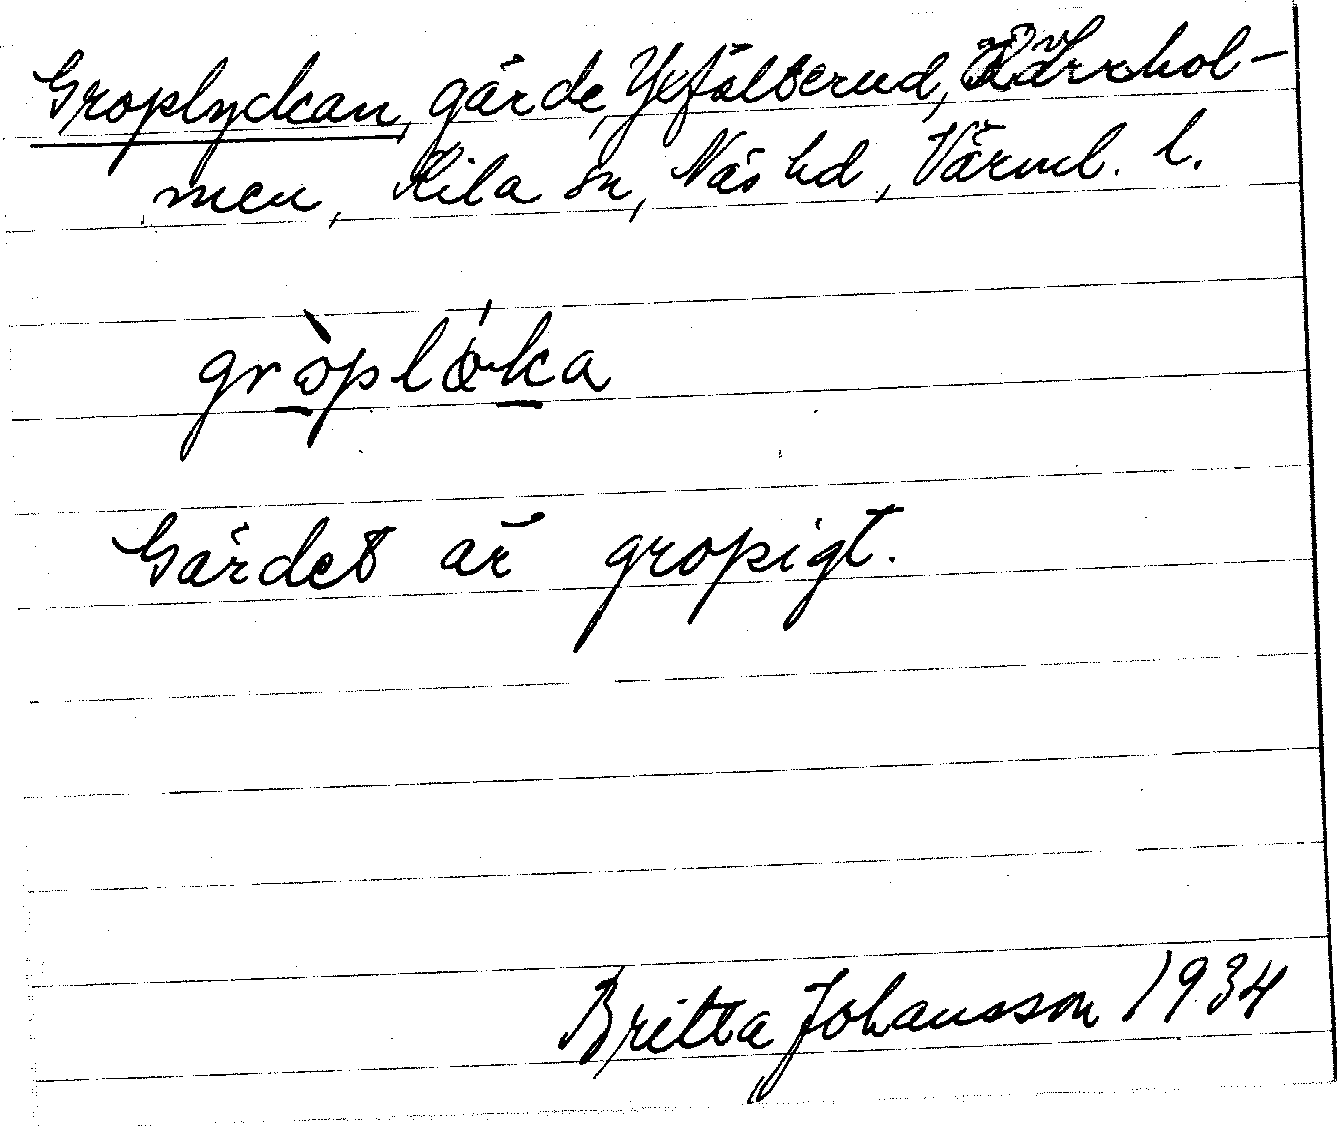 Groplyckan, gärde, Yxfälserud, Kärrhol-
men, Kila sn, Näs hd, Värml. l.
gròpløka
Gärdet är gropigt.
Britta Johansson 1934